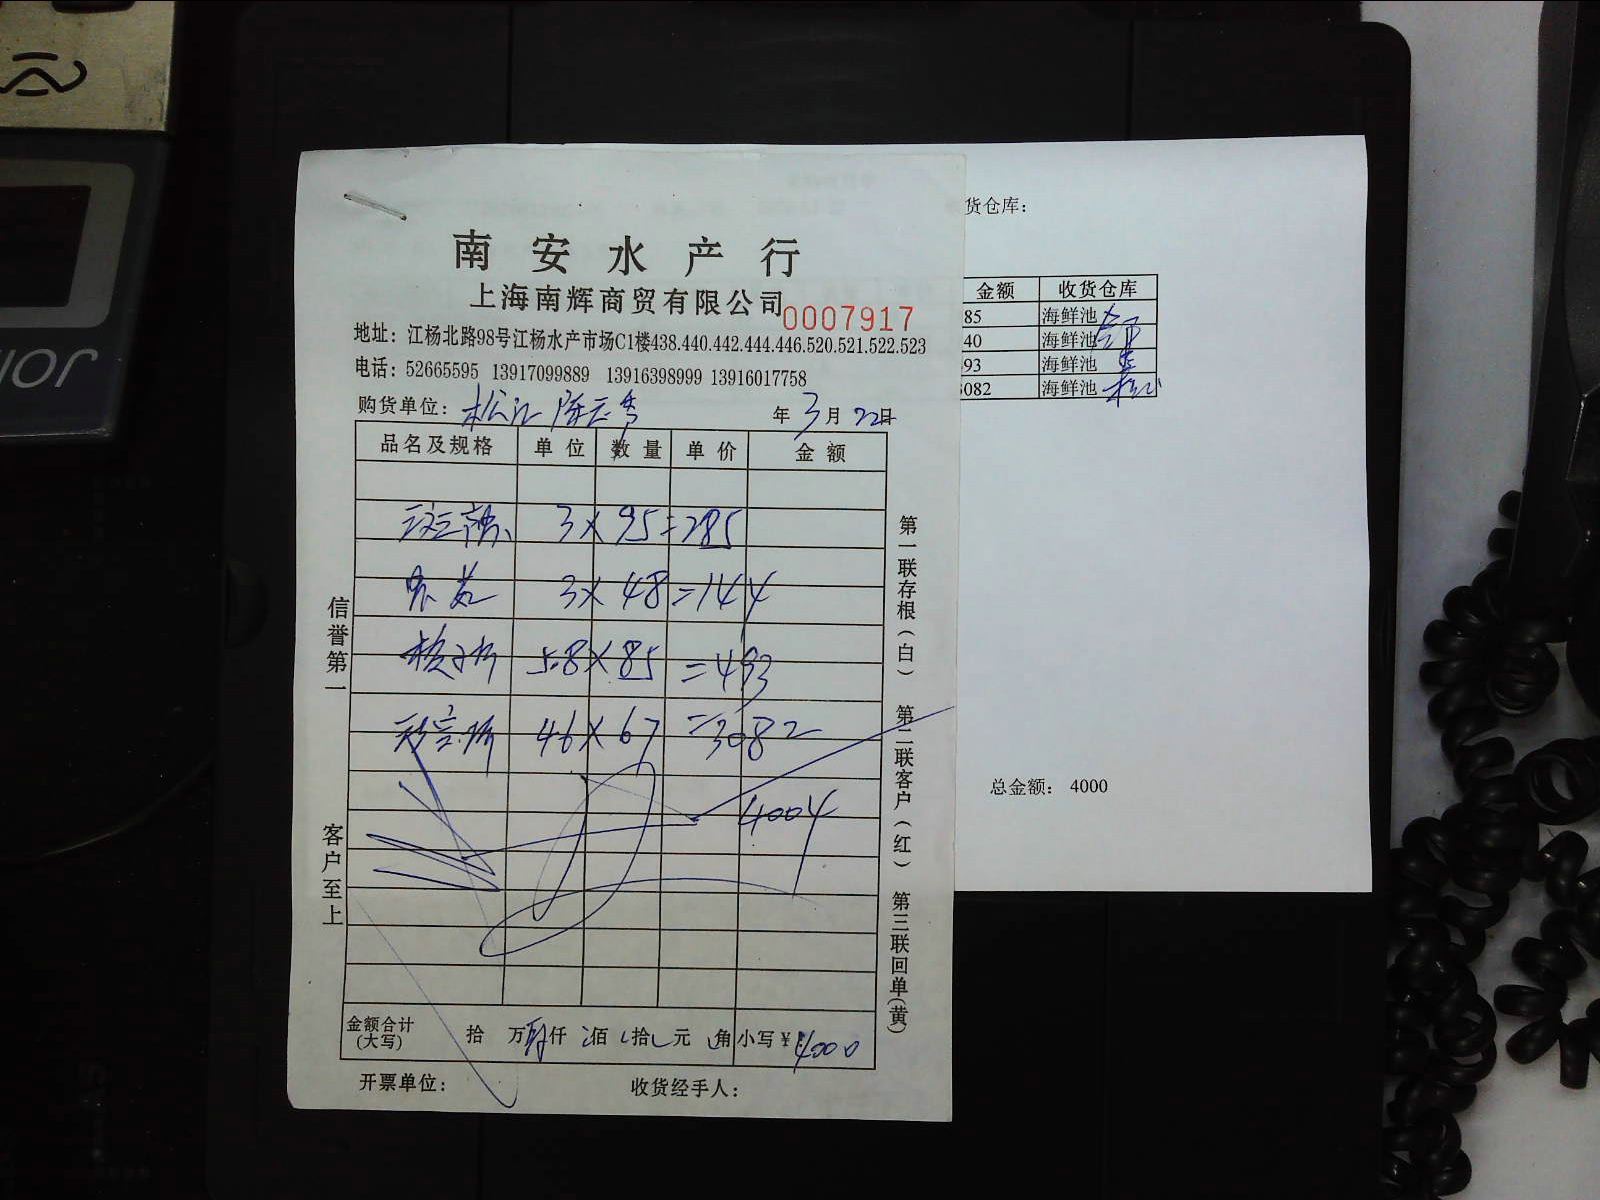 南安水产行
上海南辉商贸有限公司 0007917
地址：江杨北路98号江杨水产市场C1楼438.440.442.444.446.520.521.522.523
电话：52665595 13917099889 13916398999 13916017758
购货单位：松江 年3月22日
品名及规格 单位 数量 单价 金额
3×95=285
3×48=144
5.8×85=493
46×67=3082
4004
金额合计(大写) 拾 万 仟 佰 拾 元 角 小写￥4000
开票单位： 收货经手人：
信誉第一 客户至上
第一联存根(白) 第二联客户(红) 第三联回单(黄)
货仓库：
金额 收货仓库
85 海鲜池
40 海鲜池
93 海鲜池
082 海鲜池
总金额： 4000